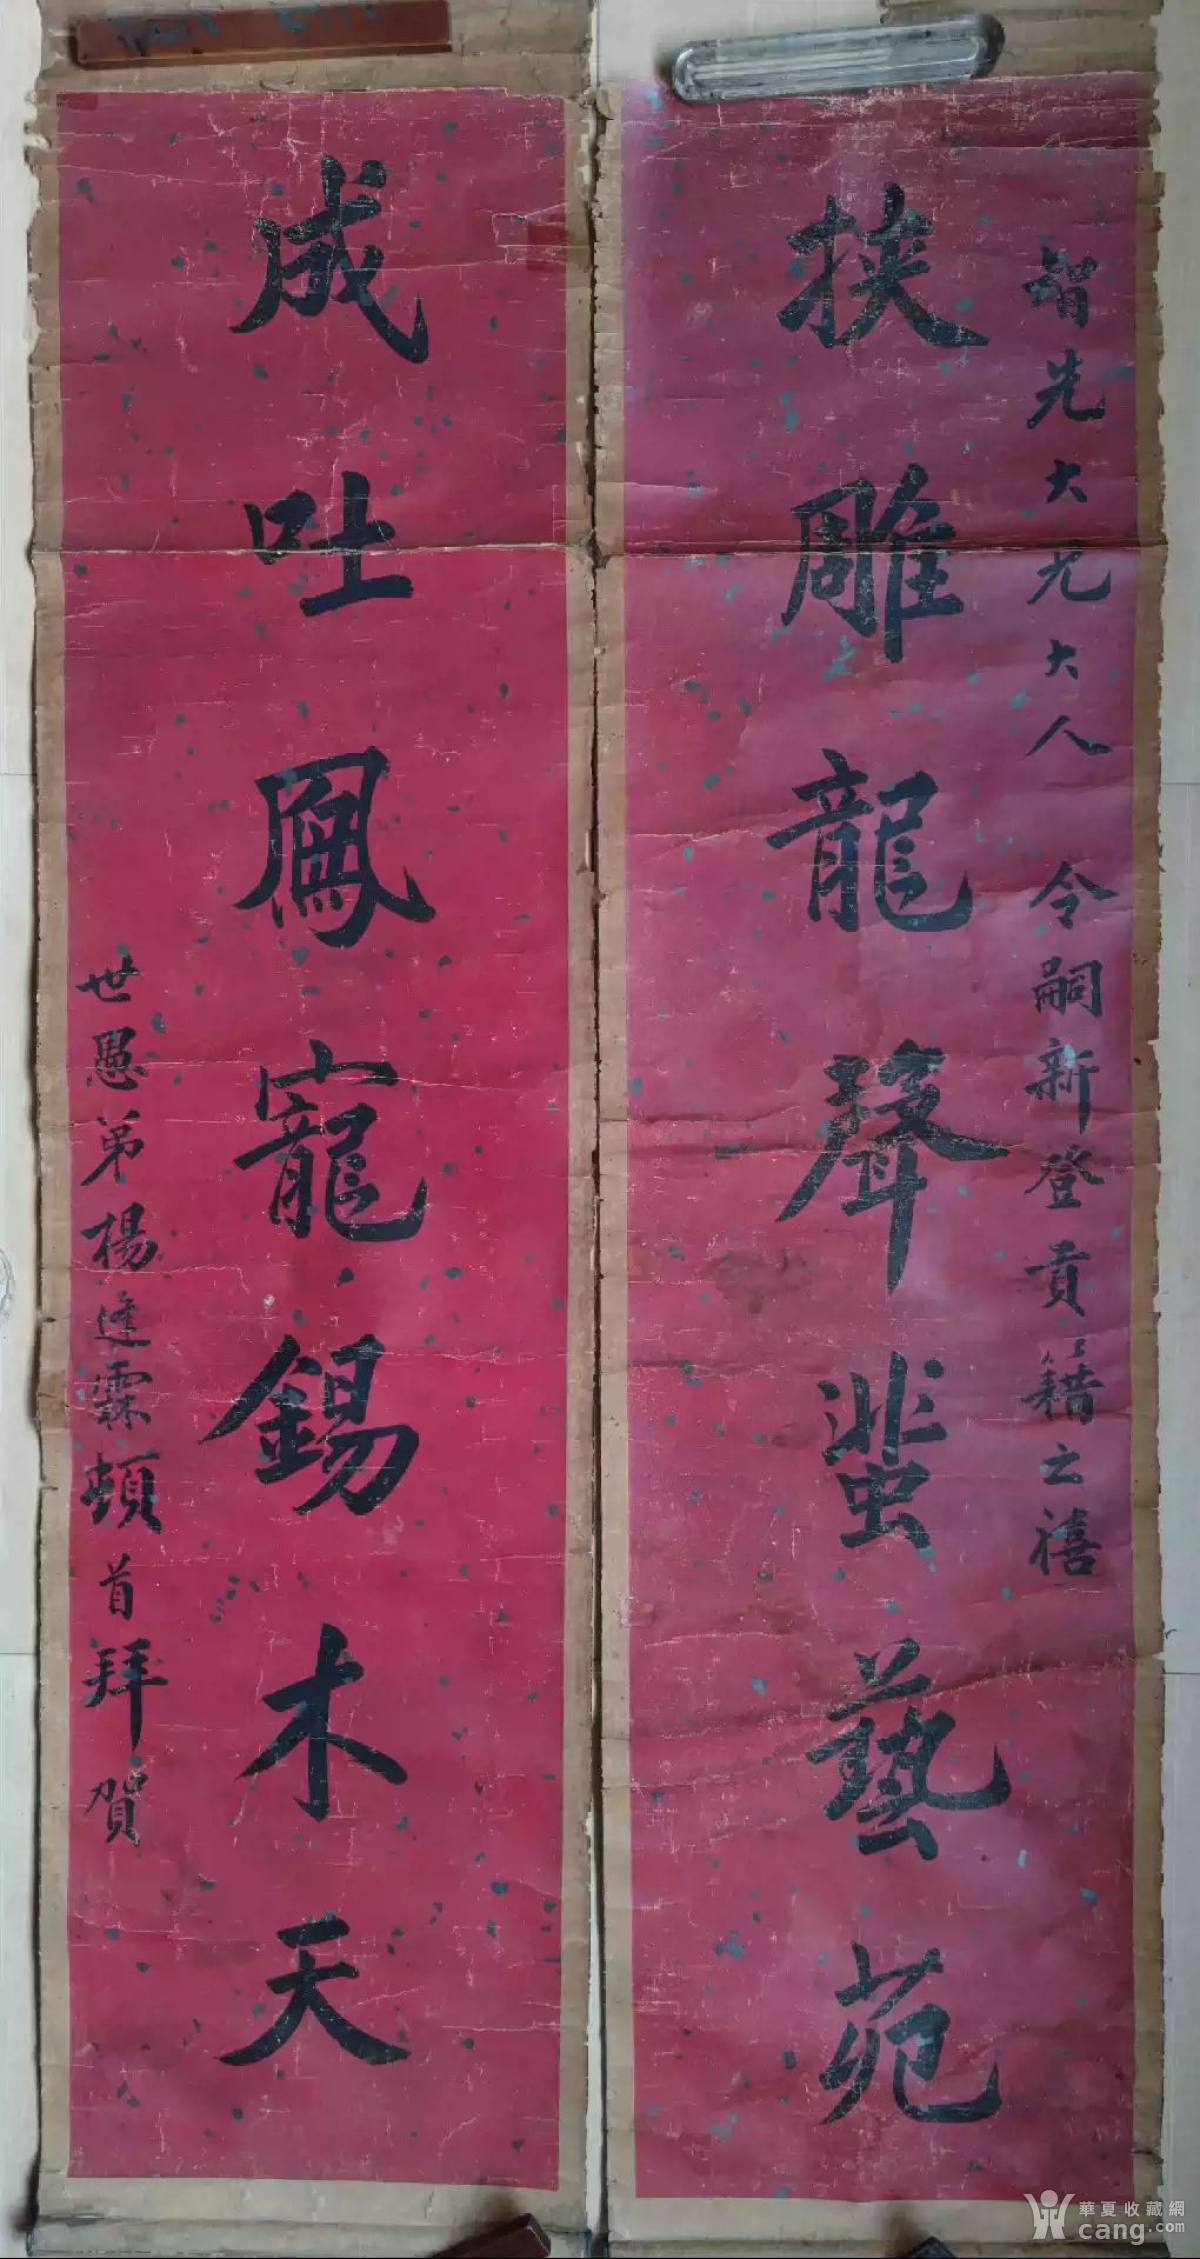 智先大兄大人 令嗣新登貢籍之禧
挾雕龍聲蜚藝苑
成吐鳳寵錫木天
世愚弟楊逢霖頓首拜賀
華夏收藏網
cang.com